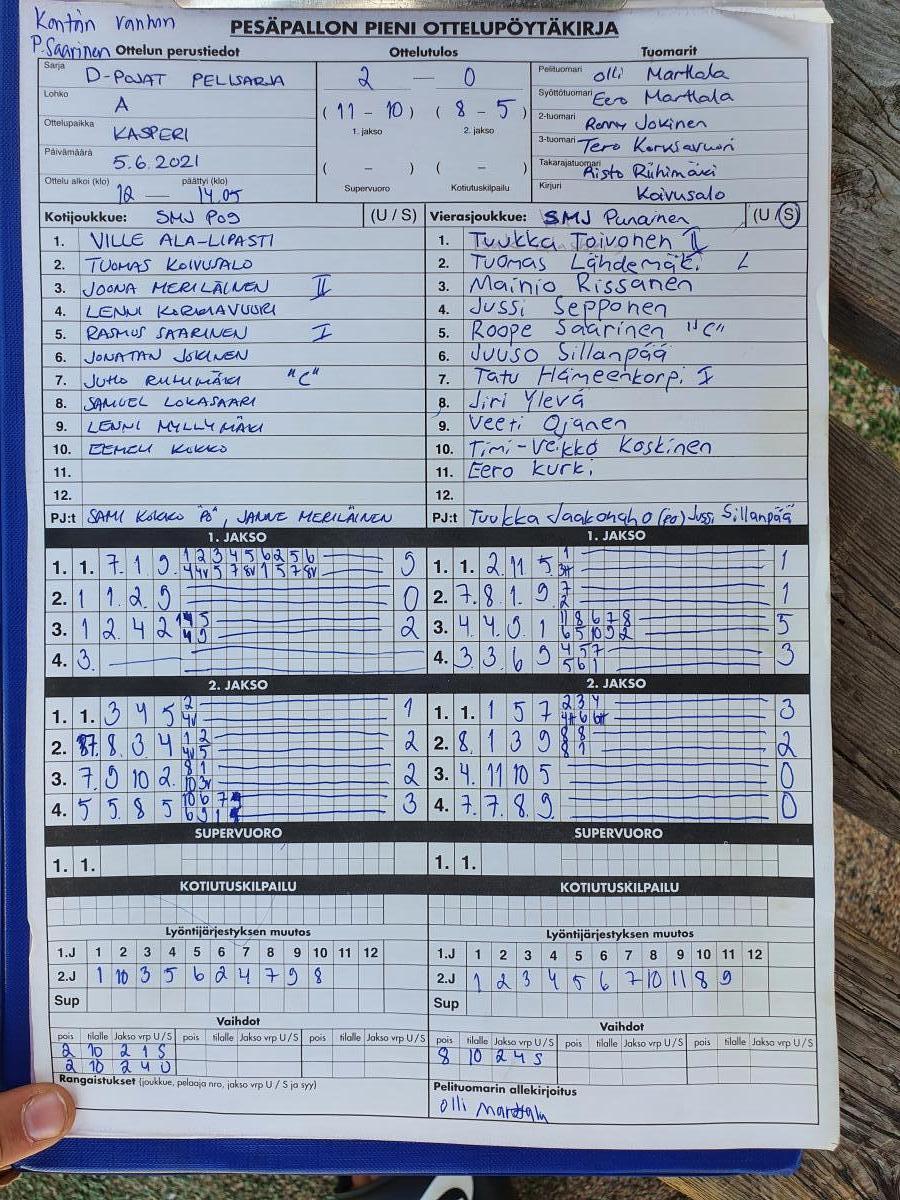 Kontón vanhan
P. Saarinen
PESÄPALLON PIENI OTTELUPÖYTÄKIRJA
Ottelun perustiedot Ottelutulos Tuomarit
Sarja D-POJAT PELISARJA
Lohko A
Ottelupaikka KASPERI
Päivämäärä 5.6.2021
Ottelu alkoi (klo) päättyi (klo)
12 — 14.05
2 — 0
( 11 - 10 ) ( 8 - 5 )
1. jakso 2. jakso
( – ) ( – )
Supervuoro Kotiutuskilpailu
Pelituomari Olli Marttala
Syöttötuomari Eero Marttala
2-tuomari Ronny Jokinen
3-tuomari Tero
Takarajatuomari Risto Riihimäki
Kirjuri Koivusalo
Kotijoukkue: SMJ POJ (U / S)
1. VILLE ALA-LIPASTI
2. TUOMAS KOIVUSALO
3. JOONA MERILÄINEN II
4. LENNI
5. RASMUS SAARINEN I
6. JONATAN JOKINEN
7. JUHO RIIHIMÄKI "C"
8. SAMUEL LOKASAARI
9. LENNI MYLLYMÄKI
10. EEMELI KOKKO
11.
12.
PJ:t SAMI KOKKO "PO", JANNE MERILÄINEN
Vierasjoukkue: SMJ Punainen (U / S)
1. Tuukka Toivonen II
2. Tuomas Lähdemäki L
3. Mainio Rissanen
4. Jussi Sepponen
5. Roope Saarinen "C"
6. Juuso Sillanpää
7. Tatu Hämeenkorpi I
8. Jiri Ylevä
9. Veeti Ojanen
10. Timi-Veikko Koskinen
11. Eero Kurki
12.
PJ:t Tuukka Jaakonaho (po) Jussi Sillanpää
1. JAKSO
1. 1. 7. 1 9. 1 2 3 4 5 6 2 5 6 9
4 4v 5 7 8v 1 5 7 8v
2. 1 1. 2 9 0
3. 1 2 4 2 2
4. 3.
1. JAKSO
1. 1. 2 11 5 1 1
2. 7. 8 1. 9 7 1
2
3. 4 4 9 1 11 8 6 7 8 5
6 5 10 9 2
4. 3 3 6 9 4 5 7 3
5 6 1
2. JAKSO
1. 1. 3 4 5 2 1
4v
2. 8. 3 4 1 2 2
4v 5
3. 7 9 10 2 8 1 2
10 3v
4. 5 5 8 5 10 6 7 3
6 9 1
2. JAKSO
1. 1. 1 5 7 2 3 4 3
4H 6 6H
2. 8. 1 3 9 8 8 2
3. 4. 11 10 5 0
4. 7. 7. 8. 9. 0
SUPERVUORO
1. 1.
SUPERVUORO
1. 1.
KOTIUTUSKILPAILU
KOTIUTUSKILPAILU
Lyöntijärjestyksen muutos
1.J 1 2 3 4 5 6 7 8 9 10 11 12
2.J 1 10 3 5 6 2 4 7 9 8
Sup
Lyöntijärjestyksen muutos
1.J 1 2 3 4 5 6 7 8 9 10 11 12
2.J 1 2 3 4 5 6 7 10 11 8 9
Sup
Vaihdot
pois tilalle Jakso vrp U / S pois tilalle Jakso vrp U / S pois tilalle Jakso vrp U / S
2 10 2 1 S
2 10 2 4 U
Vaihdot
pois tilalle Jakso vrp U / S pois tilalle Jakso vrp U / S pois tilalle Jakso vrp U / S
8 10 2 4 S
Rangaistukset (joukkue, pelaaja nro, jakso vrp U / S ja syy)
Pelituomarin allekirjoitus
Olli Marttala